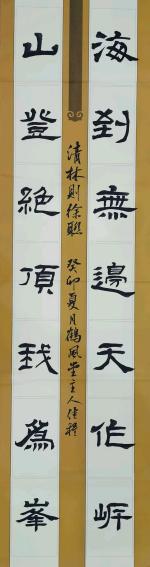 海到無邊天作岸
山登絕頂我爲峯
清林則徐聯 癸卯夏月鶴風堂主人